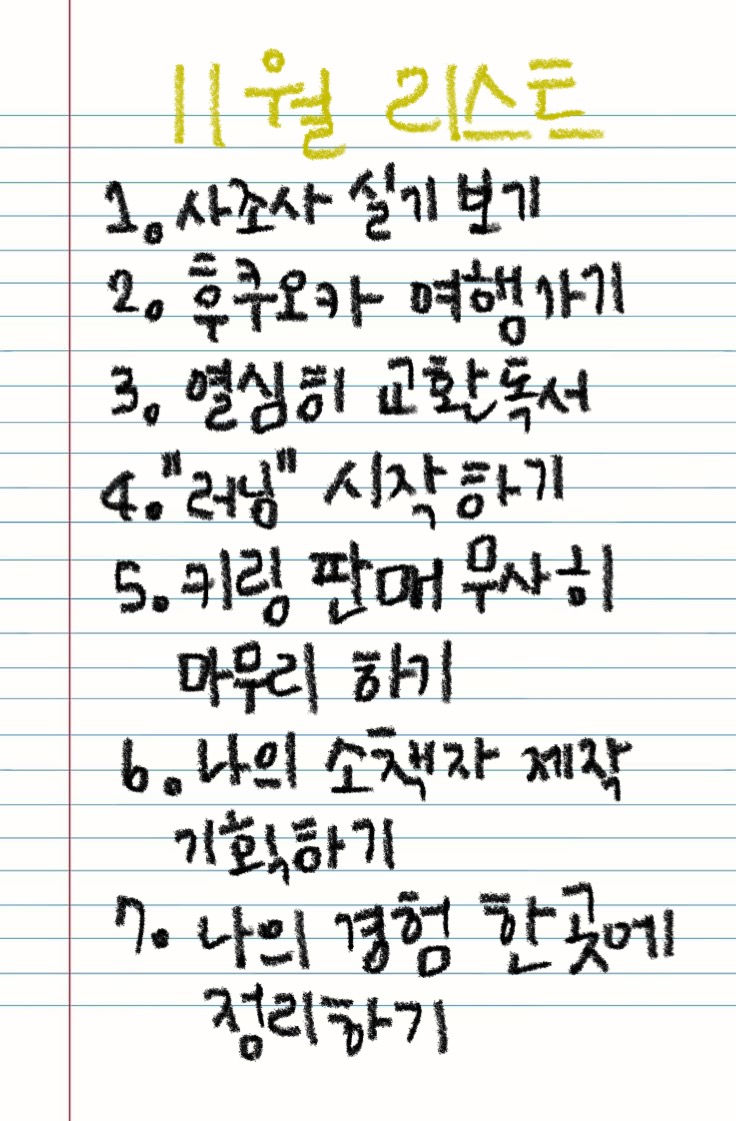 11월 리스트
1. 사조사 실기 보기
2. 후쿠오카 여행가기
3. 열심히 교환독서
4. "러닝" 시작하기
5. 키링 판매 무사히
마무리 하기
6. 나의 소책자 제작
기획하기
7. 나의 경험 한곳에
정리하기